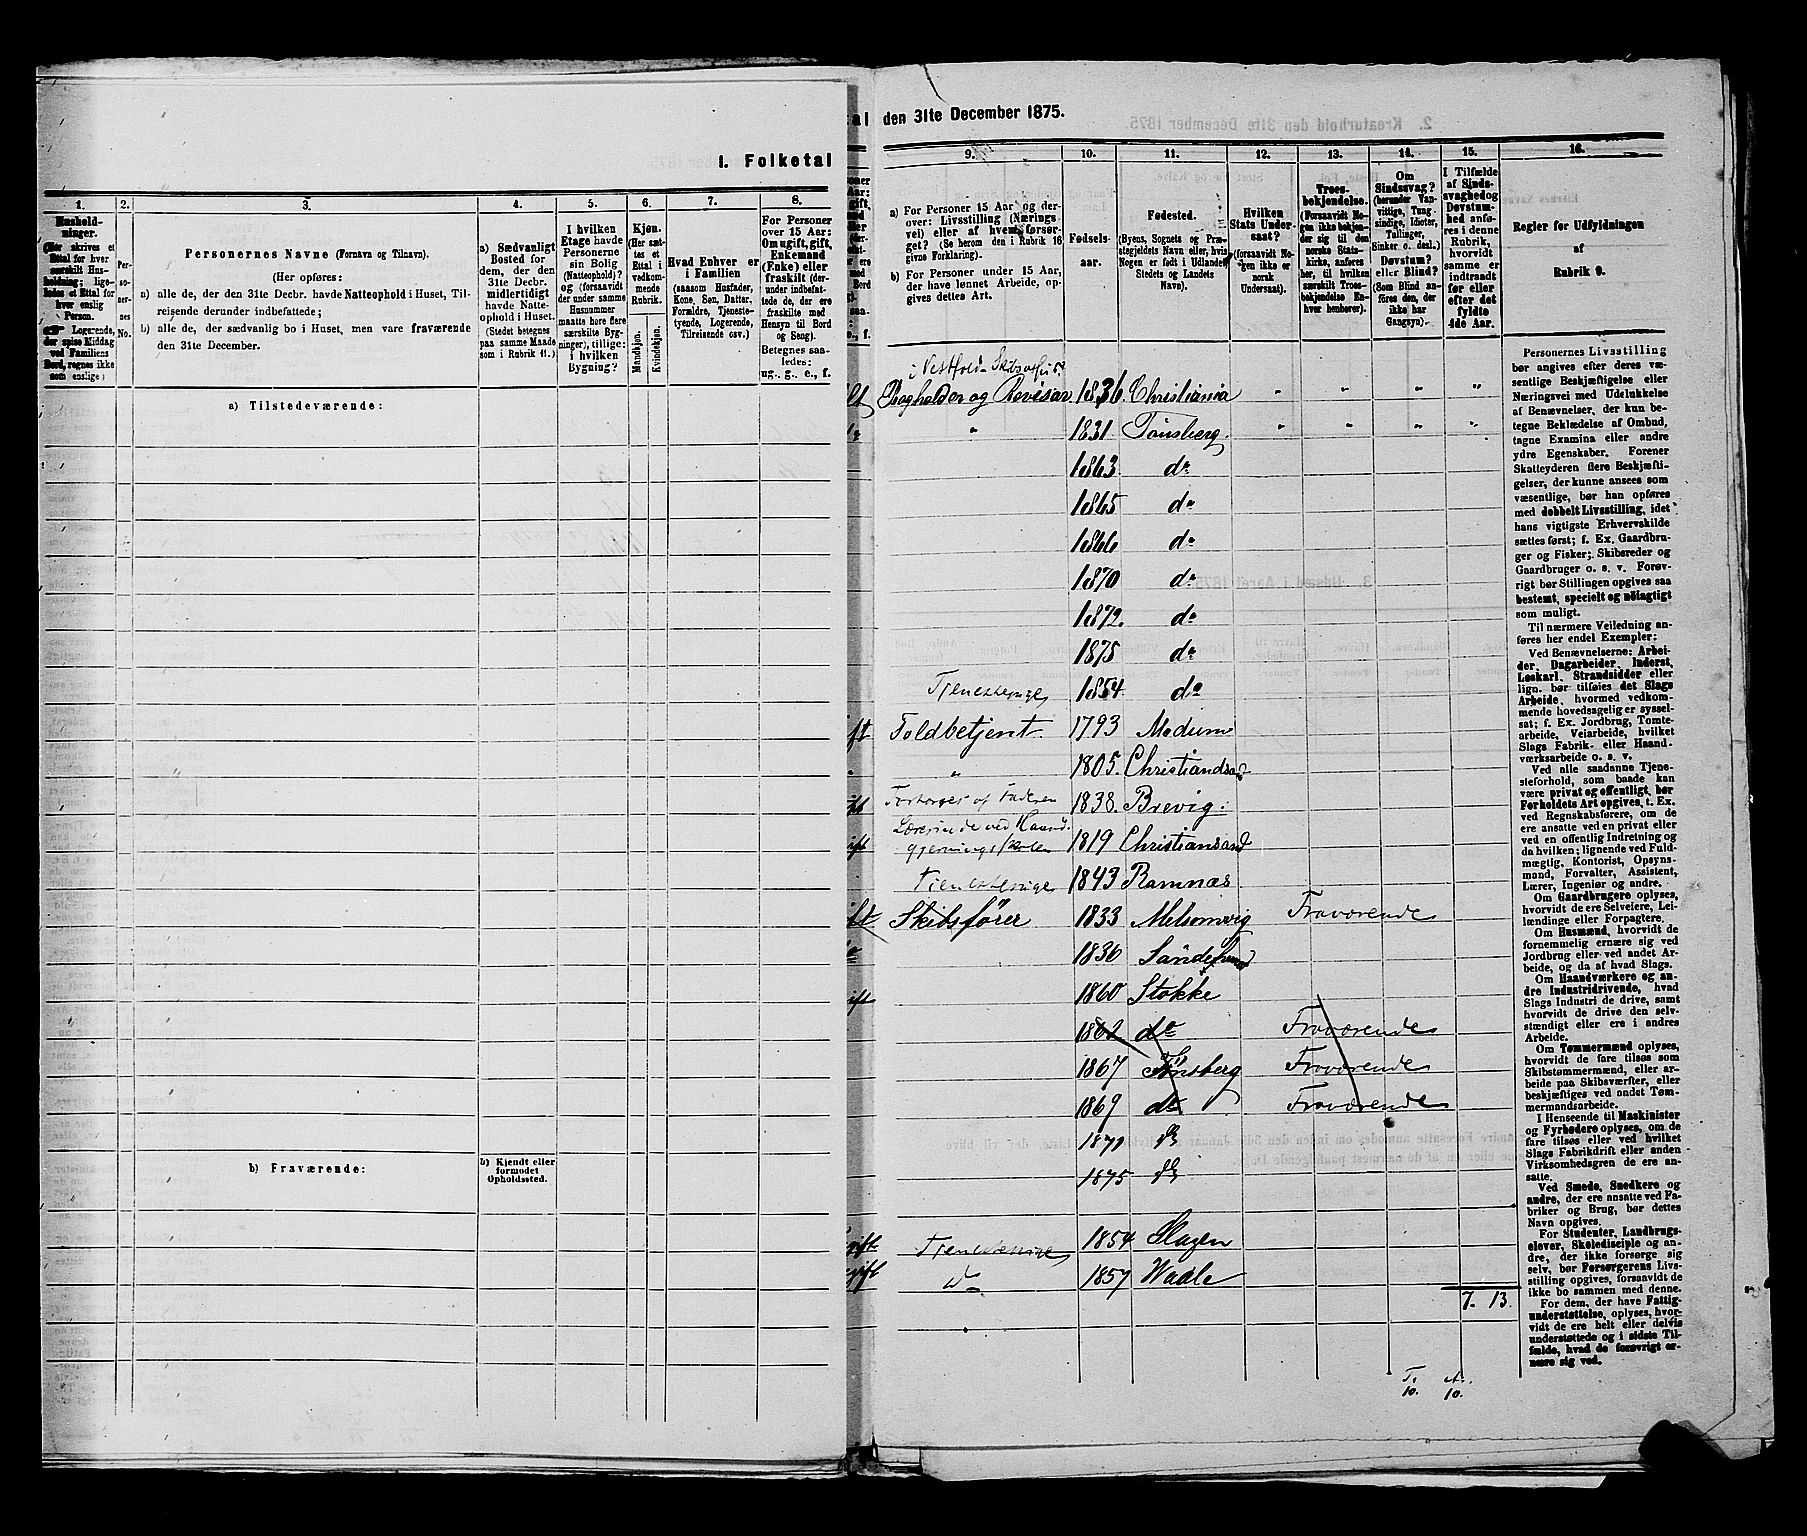 I. Folketal
1. 2. 3. 4. 5. 6. 7. 8.
Hushold-
ninger.
(Her skrives et
Ettal for hver
særskilt Hus-
holdning; lige-
ledes et Ettal for
hver enslig
Person.
Logerende,
der spise Middag
ved Familiens
Bord, regnes ikke
som enslige)
Per-
so-
ner-
nes
No.
Personernes Navne (Fornavn og Tilnavn).
(Her opføres:
a) alle de, der den 31te Decbr. havde Natteophold i Huset, Til-
reisende derunder indbefattede;
b) alle de, der sædvanlig bo i Huset, men vare fraværende
den 31te December.
a) Sædvanligt
Bosted for
dem, der den
31te Decbr.
midlertidigt
havde Natte-
ophold i Huset.
(Stedet betegnes
paa samme Maade
som i Rubrik 11.)
I hvilken
Etage havde
Personerne
sin Bolig
(Natteophold)?
og (forsaavidt
der under samme
Husnummer
maatte høre flere
særskilte Byg-
ninger), tillige:
i hvilken
Bygning?
Kjøn.
(Her sæt-
tes et
Ettal i
vedkom-
mende
Rubrik.
Mandkjøn.
Kvindekjøn.
Hvad Enhver er
i Familien
(saasom Husfader,
Kone, Søn, Datter,
Forældre, Tjeneste-
tyende, Logerende,
Tilreisende osv.)
For Personer
over 15 Aar:
Om ugift, gift,
Enkemand
(Enke) eller
fraskilt (der-
under indbefat-
tede de, der ere
fraskilte med
Hensyn til Bord
og Seng).
Betegnes saa-
ledes:
ug., g., e., f.
a) Tilstedeværende:
b) Fraværende:
b) Kjendt eller
formodet
Opholdssted.
tal den 31te December 1875.
9. 10. 11. 12. 13. 14. 15. 16.
a) For Personer 15 Aar og der-
over: Livsstilling (Nærings-
vei) eller af hvem forsør-
get? (Se herom den i Rubrik 16
givne Forklaring).
b) For Personer under 15 Aar,
der have lønnet Arbeide, op-
gives dettes Art.
Fødsels-
aar.
Fødested.
(Byens, Sognets og Præ-
stegjeldets Navn eller, hvis
Nogen er født i Udlandet,
Stedets og Landets
Navn).
Hvilken
Stats Under-
saat?
(forsaavidt No-
gen ikke er
norsk
Undersaat).
Troes-
bekjendelse.
(Forsaavidt No-
gen ikke bekjen-
der sig til den
norske Stats-
kirke, anføres
her, til hvilken
særskilt Troes-
bekjendelse En-
hver henhører).
Om
Sindssvag?
(herunder Van-
vittige, Tung-
sindige, Idioter,
Tullinger,
Sinker o. desl.)
Døvstum?
eller Blind?
(Som Blind an-
føres den, der
ikke har
Gangsyn).
I Tilfælde
af Sinds-
svaghed og
Døvstum-
hed anfø-
res i denne
Rubrik,
hvorvidt
samme er
indtraadt
før eller
efter det
fyldte
4de Aar.
Regler for Udfyldningen
af
Rubrik 9.
Bogholder og Revisor 1836. Christiania " " " "
" 1831 Tönsberg. " " " "
1863 do
1865 do
1866 do
1870 do
1872. do
1875 do
Tjenestepige 1854 do
Toldbetjent 1793 Modum
" 1805. Christiandsand
Forsørges af Faderen 1838. Brevig.
Lærerinde ved Haand-
gjerningsskolen 1819 Christiansand
Tjenestepige 1843 Ramnæs
Skibsfører 1833 Melsomvig Fraværende
1836 Sandeherred
1860 Stokke
1862 do Fraværende
1867 Tönsberg Fraværende
1869 do Fraværende
1875 do
Tjenestepige 1854 Slagen
do 1857 Waale
7. 13.
T. A.
10. 10.
Personernes Livsstilling
bør angives efter deres væ-
sentlige Beskjæftigelse eller
Næringsvei med Udelukkelse
af Benævnelser, der kun be-
tegne Beklædelse af Ombud,
tagne Examina eller andre
ydre Egenskaber. Forener
Skatteyderen flere Beskjæfti-
gelser, der kunne ansees som
væsentlige, bør han opføres
med dobbelt Livsstilling, idet
hans vigtigste Erhvervskilde
sættes først; f. Ex. Gaardbru-
ger og Fisker; Skibsreder og
Gaardbruger o. s. v. Forøv-
rigt bør Stillingen opgives saa
bestemt, specielt og nøiagtigt
som muligt.
Til nærmere Veiledning an-
føres her endel Exempler:
Ved Benævnelserne: Arbei-
der, Dagarbeider, Inderst,
Løskarl, Strandsidder eller
lign. bør tilføies det Slags
Arbeide, hvormed vedkom-
mende hovedsagelig er syssel-
sat; f. Ex. Jordbrug, Tomte-
arbeide, Veiarbeide, hvilket
Slags Fabrik- eller Haand-
værksarbeide o. s. v.
Ved alle saadanne Tjene-
steforhold, som baade kan
være privat og offentligt, bør
Forholdets Art opgives, t. Ex.
ved Regnskabsførere, om de
ere ansatte ved en privat eller
en offentlig Indretning og
da hvilken; lignende ved Fuld-
mægtig, Kontorist, Opsyns-
mand, Forvalter, Assistent,
Lærer, Ingeniør og andre.
Om Gaardbrugere oplyses,
hvorvidt de ere Selveiere, Lei-
lændinge eller Forpagtere.
Om Husmænd, hvorvidt de
fornemmelig ernære sig ved
Jordbrug eller ved andet Ar-
beide, og da af hvad Slags.
Om Haandværkere og an-
dre Industridrivende, hvad
Slags Industri de drive, samt
hvorvidt de drive den selv-
stændigt eller ere i andres
Arbeide.
Om Tømmermænd oplyses,
hvorvidt de fare tilsøs som
Skibstømmermænd, eller ar-
beide paa Skibsværfter, eller
beskjæftiges ved andet Tøm-
mermandsarbeide.
I Henseende til Maskinister
og Fyrbødere oplyses, om de
fare tilsøs eller ved hvilket
Slags Fabrikdrift eller anden
Virksomhedsgren de ere an-
satte.
Ved Smede, Snedkere og
andre, der ere ansatte ved Fa-
briker og Brug, bør dettes
Navn opgives.
For Studenter, Landbrugs-
elever, Skoledisciple og an-
dre, der ikke forsørge sig
selv, bør Forsørgerens Livs-
stilling opgives, forsaavidt de
ikke bo sammen med denne.
For dem, der have Fattig-
understøttelse, oplyses, hvor-
vidt de ere helt eller delvis
understøttede og i sidste Til-
fælde, hvad de forøvrigt er-
nære sig ved.